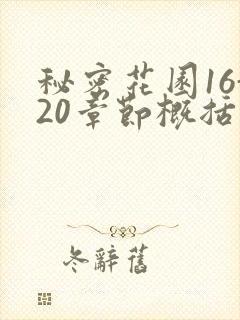 秘密花园16-
20章节概括
冬辭舊